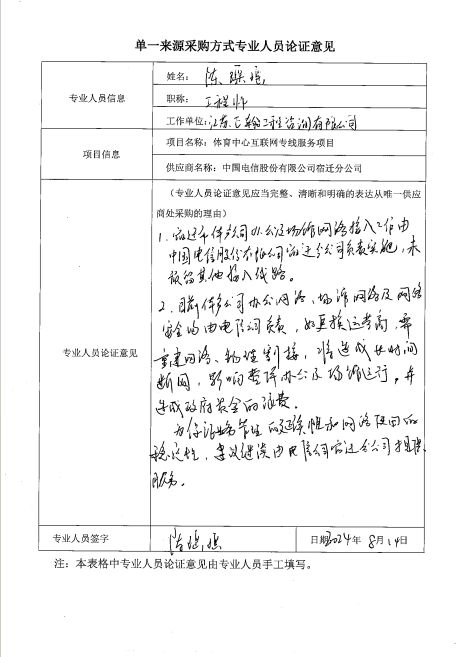 单一来源采购方式专业人员论证意见
专业人员信息
姓名：陈
职称：工程师
工作单位：江苏工程咨询有限公司
项目信息
项目名称：体育中心互联网专线服务项目
供应商名称：中国电信股份有限公司宿迁分公司
专业人员论证意见
（专业人员论证意见应当完整、清晰和明确的表达从唯一供应
商处采购的理由）
1、宿迁市体育公司办公及场馆网络接入工作由
中国电信股份有限公司宿迁分公司负责实施，未
预留其他接入线路。
2、目前体育公司办公网络、场馆网络及网络
安全均由电信公司负责，如更换运营商，需
重建网络、物理割接，将造成长时间
断网，影响整体办公及场馆运行，并
造成政府资金的浪费。
为保证业务管理的延续性和网络使用的
稳定性，建议继续由电信公司宿迁分公司提供
服务。
专业人员签字
日期2024年8月14日
注：本表格中专业人员论证意见由专业人员手工填写。